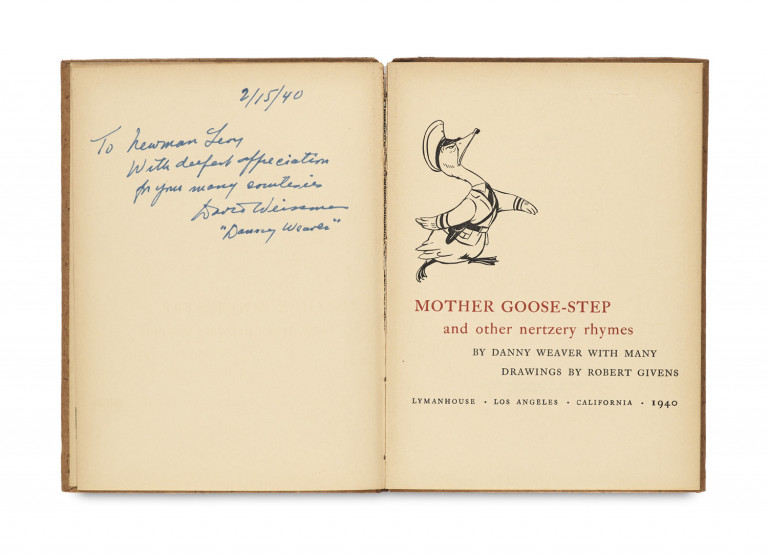 2/15/40
To Newman Levy
With deepest appreciation
for your many courtesies
David Weissman
"Danny Weaver"
MOTHER GOOSE-STEP
and other nertzery rhymes
BY DANNY WEAVER WITH MANY
DRAWINGS BY ROBERT GIVENS
LYMANHOUSE · LOS ANGELES · CALIFORNIA · 1940